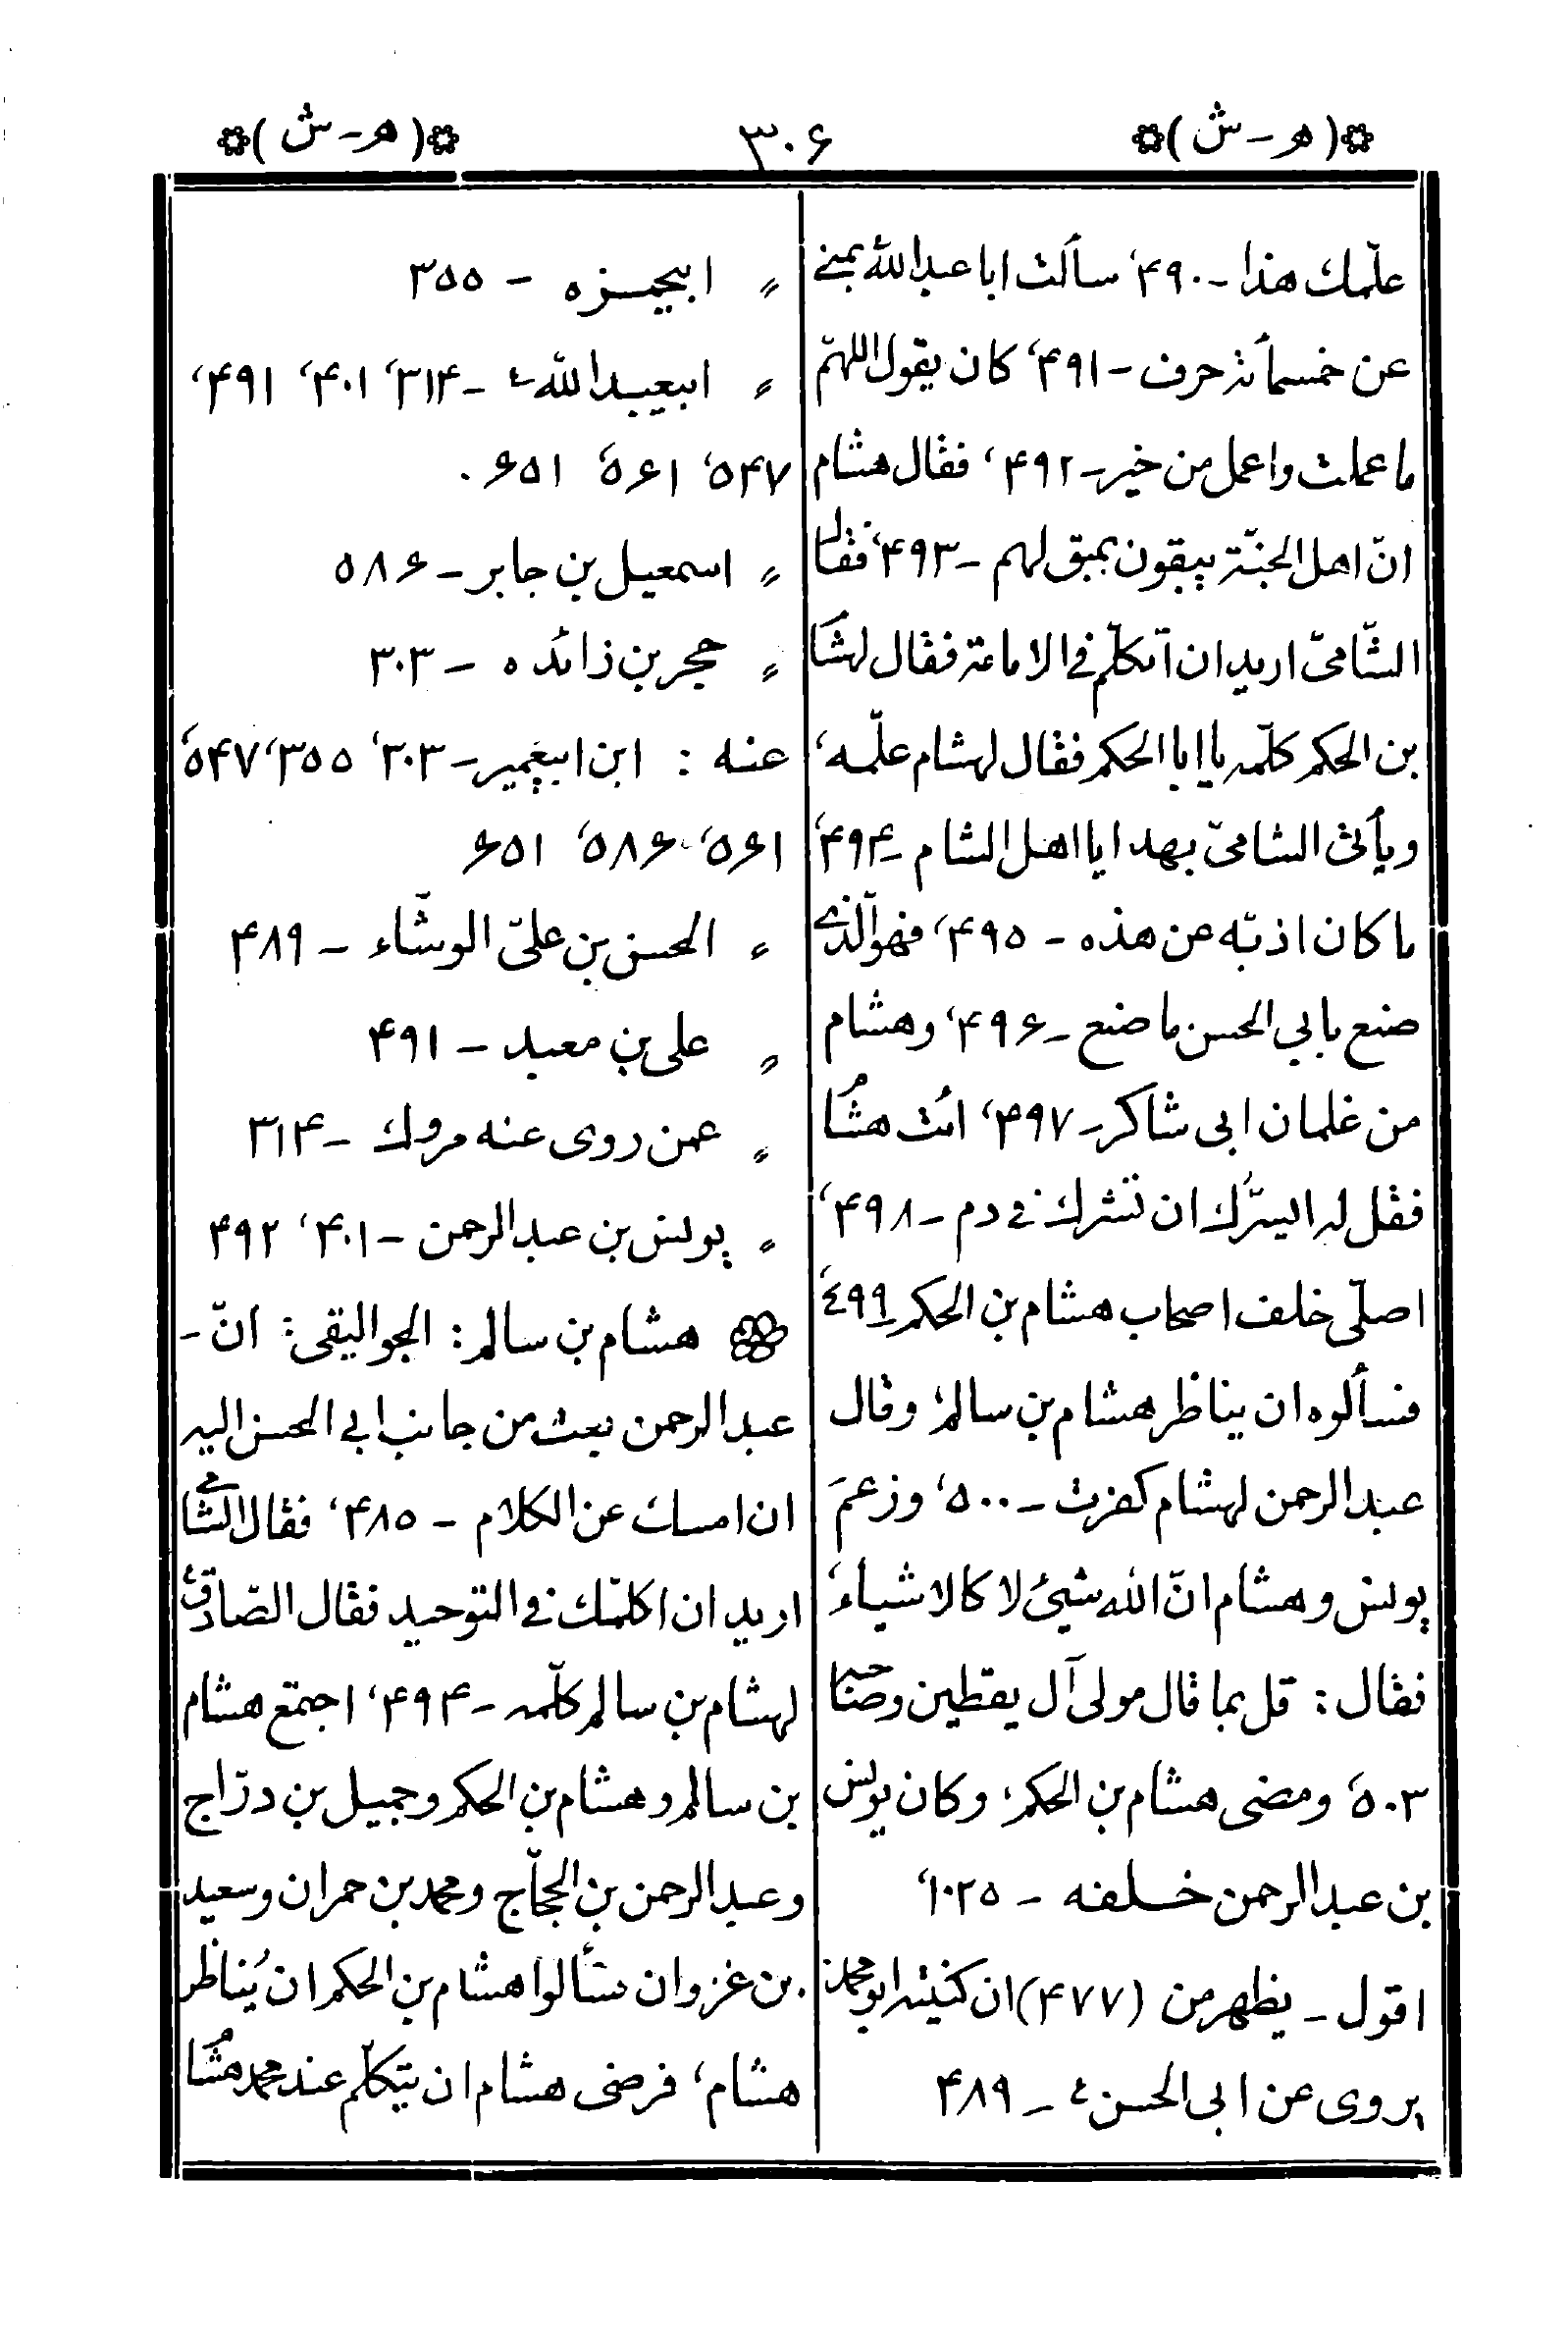 (هـ-ش) ٣٠۶ (هـ-ش)
علّمك هذا - ۴٩٠، سألت ابا عبد الله بمنى
عن خمسمأئة حرف - ۴٩١، كان يقول اللهمّ
ما عملت واعمل من خير - ۴٩٢، فقال هشام
انّ اهل الجنّة يبقون بمبق لهم - ۴٩٣، فقال
الشّاميّ اريد ان اتكلّم في الامامة فقال لهشام
بن الحكم كلّمه يا ابا الحكم فقال لهشام علّمه،
ويأتى الشاميّ بهدايا اهل الشام - ۴٩۴،
ما كان اذ تبّه عن هذه - ۴٩٥، فهو الّذي
صنع بابي الحسن ما صنع - ۴٩۶، وهشام
من غلمان ابى شاكر - ۴٩٧، ائت هشام
فقل له ايسرّك ان تشرك في دم - ۴٩٨،
اصلّى خلف اصحاب هشام بن الحكم - ٤٩٩،
فسألوه ان يناظر هشام بن سالم، وقال
عبد الرحمن لهشام كفرت - ٥٠٠، وزعم
يونس وهشام انّ الله شيئ لا كالاشياء،
فقال: قل بما قال مولى آل يقطين وصاحبه
٥٠٣، ومضى هشام بن الحكم، وكان يونس
بن عبد الرحمن خلفه - ١٠٢٥،
اقول - يظهر من (۴٧٧) ان كنيته ابو محمد:
يروى عن ابى الحسن ع - ۴٨٩
〃 ابيحمزه - ٣٥٥
〃 ابيعبد الله ع - ٣١۴، ۴٠١، ۴٩١،
٥۴٧، ٥۶١، ۶٥١.
〃 اسمعيل بن جابر - ٥٨۶
〃 حجر بن زائده - ٣٠٣
عنه : ابن ابيعمير - ٣٠٣، ٣٥٥، ٥۴٧،
٥۶١، ٥٨۶، ۶٥١
〃 الحسن بن علىّ الوشّاء - ۴٨٩
〃 على بن معبد - ۴٩١
〃 عمن روى عنه مروك - ٣١۴
〃 يونس بن عبد الرحمن - ۴٠١، ۴٩٢
هشام بن سالم: الجواليقى: انّ -
عبد الرحمن بعث من جانب ابي الحسن اليه
ان امسك عن الكلام - ۴٨٥، فقال الشامي
اريد ان اكلّمك في التوحيد فقال الصّادق ع
لهشام بن سالم كلّمه - ۴٩۴، اجتمع هشام
بن سالم وهشام بن الحكم وجميل بن درّاج
وعبد الرحمن بن الحجّاج ومحمد بن حمران وسعيد
بن غزوان سألوا هشام بن الحكم ان يُناظر
هشام، فرضى هشام ان يتكلّم عند محمد هشام